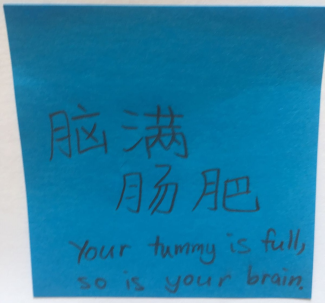 脑满
肠肥
Your tummy is full,
so is your brain.